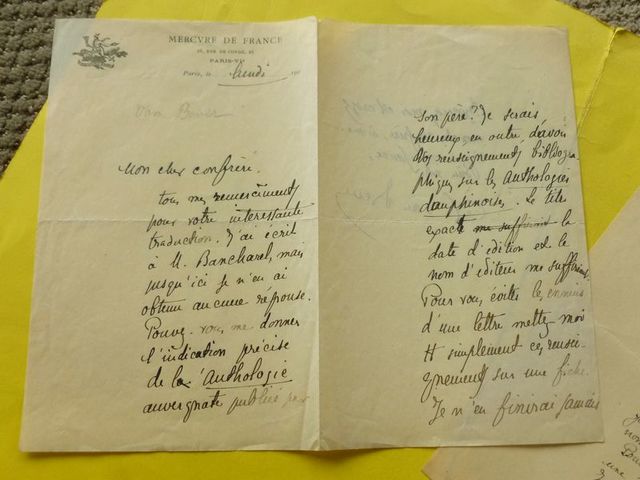 MERCVRE DE FRANCE
26, RVE DE CONDÉ, 26
PARIS-VIe
Paris, le lundi 190
Van Bever
Mon cher confrère.
tous mes remerciments
pour votre intéressante
traduction. J'ai écrit
à M. Bancharel, mais
jusqu'ici je n'en ai
obtenu aucune réponse.
Pouvez-vous me donner
l'indication précise
de la l'Anthologie
auvergnate publiée par
son père? Je serais
heureux, en outre, d'avoir
vos renseignements bibliogra
phiques sur les Anthologies
dauphinoises. Le titre
exact me suffirait la
date d'édition et le
nom d'éditeur me suffisent.
Pour vous éviter les ennuis
d'une lettre mettez-moi
tt simplement ces rensei-
gnements sur une fiche.
Je n'en finirai jamais